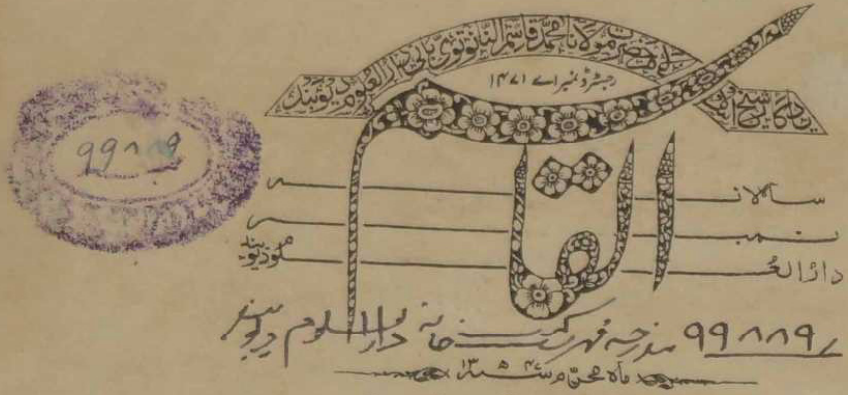 یادگار شیخ حضرت مولانا محمد قاسم النانوتوی بانی دارالعلوم دیوبند
رجسٹرڈ نمبر اے ۱۴۷۱
القاسم
۹۹۸۸۹
سالانہ
دارالعلوم دیوبند
۹۹۸۸۹ مندرجہ فہرست کتب خانہ دارالعلوم دیوبند
ماہ محرم ۱۳۴۷ھ